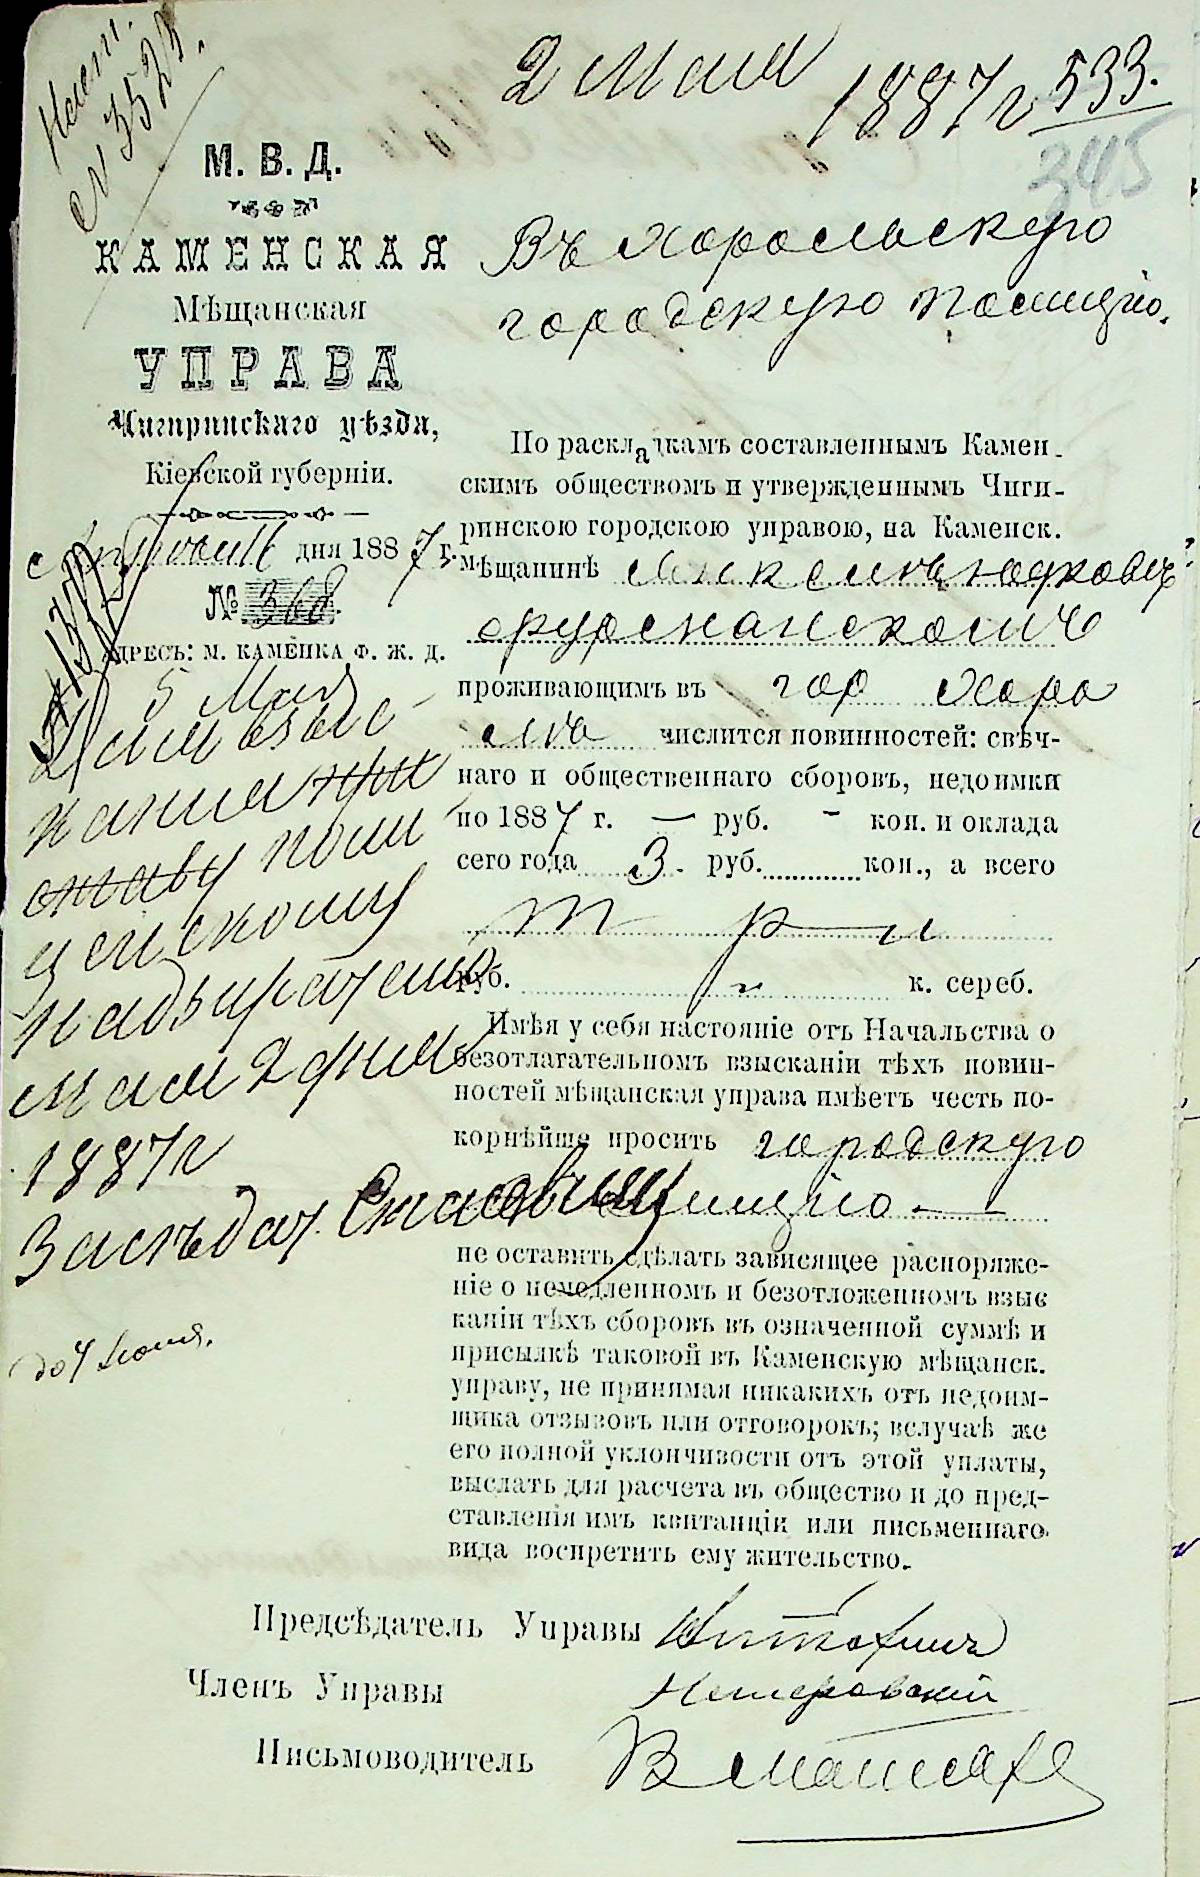 2 Мая
1887 г 533.
345
№ 3523.
М. В. Д.
КАМЕНСКАЯ
Мѣщанская
УПРАВА
Чигиринскаго уѣзда,
Кіевской губерніи.
дня 1887 г.
№ 368.
АДРЕСЪ: М. КАМЕНКА Ф. Ж. Д.
5 Мая
Для взыс
канія при
ставу поли
цейскому
надзирателю
мая 2 дня
1887 г
Засѣдат.
до 4 Іюня.
Въ Хорольскую
городскую полицію.
По раскладкамъ составленнымъ Камен-
скимъ обществомъ и утвержденнымъ Чиги-
ринскою городскою управою, на Каменск.
мѣщанинѣ
проживающимъ въ гор Хоро
лѣ числится повинностей: свѣч-
наго и общественнаго сборовъ, недоимки
по 1887 г. — руб. - коп. и оклада
сего года 3. руб. коп., а всего
три
руб. „ к. сереб.
Имѣя у себя настояніе отъ Начальства о
безотлагательномъ взысканіи тѣхъ повин-
ностей мѣщанская управа имѣетъ честь по-
корнѣйше просить городскую
полицію —
не оставить сдѣлать зависящее распоряже-
ніе о немедленномъ и безотложенномъ взыс
каніи тѣхъ сборовъ въ означенной суммѣ и
присылкѣ таковой въ Каменскую мѣщанск.
управу, не принимая никакихъ отъ недоим-
щика отзывовъ или отговорокъ; вслучаѣ же
его полной уклончивости отъ этой уплаты,
выслать для расчета въ общество и до пред-
ставленія имъ квитанціи или письменнаго
вида воспретить ему жительство.
Предсѣдатель Управы
Членъ Управы
Письмоводитель